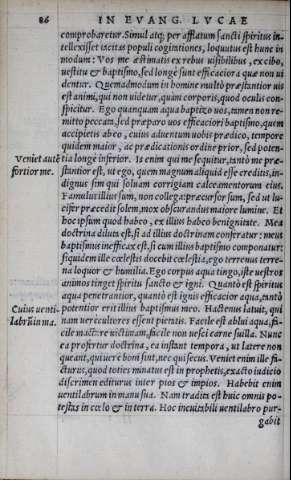 86 IN EVANG. LVCAE
comprobaretur. Simul atq; per afflatum sancti spiritus in-
tellexisset tacitas populi cogitationes, loquutus est hunc in
modum: Vos me æstimatis ex rebus uisibilibus, ex cibo,
uestitu & baptismo, sed longè sunt efficaciora quæ non ui
dentur. Quemadmodum in homine multò præstantior uis
est animi, qui non uidetur, quàm corporis, quod oculis con-
spicitur. Ego quanquam aqua baptizo uos, tamen non re-
mitto peccata, sed præparo uos efficaciori baptismo, quem
accipietis ab eo, cuius aduentum uobis prædico, tempore
quidem maior, ac prædicationis ordine prior, sed poten-
Veniet autē tia longè inferior. Is enim qui me sequitur, tantò me præ-
fortior me. stantior est, ut ego, quem magnum aliquid esse creditis, in-
dignus sim qui soluam corrigiam calceamentorum eius.
Famulus illius sum, non collega: præcursor sum, sed ut lu-
cifer præcedit solem, mox obscurandus maiore lumine. Et
hoc ipsum quod habeo, ex illius habeo benignitate. Mea
doctrina dilutа est, si ad illius doctrinam conferatur: meus
baptismus inefficax est, si cum illius baptismo componatur:
siquidem ille cœlestis docebit cœlestia, ego terrenus terre-
na loquor & humilia. Ego corpus aqua tingo, iste uestros
animos tinget spiritu sancto & igni. Quantò est spiritus
aqua penetrantior, quantò est ignis efficacior aqua, tantò
Cuius uenti- potentior erit illius baptismus meo. Hactenus latuit, qui
labrū in ma. nam uerè cultores essent pietatis. Facile est ablui aqua, fa-
cile mactare uictimam, facile non uesci carne suilla. Nunc
ea profertur doctrina, ea instant tempora, ut latere non
queant, qui uerè boni sint, nec qui secus. Veniet enim ille fu-
cturus, quod toties minatus est in prophetis, exacto iudicio
discrimen editurus inter pios & impios. Habebit enim
uentilabrum in manu sua. Nam tradita est huic omnis po-
testas in cœlo & in terra. Hoc ineuitabili uentilabro pur-
gabit